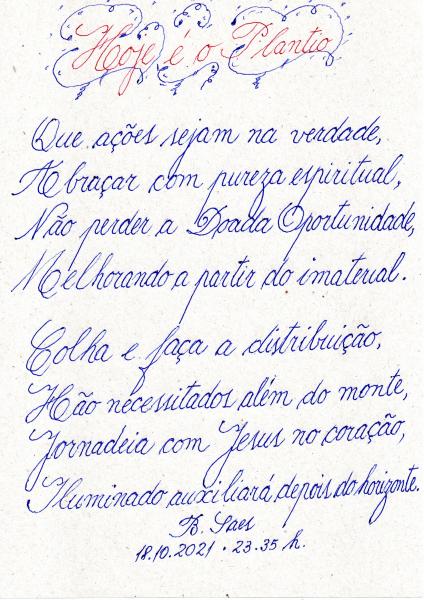 Hoje é o Plantio
Que ações sejam na verdade,
Abraçar com pureza espiritual,
Não perder a Doada Oportunidade,
Melhorando a partir do imaterial.
Colha e faça a distribuição,
Hão necessitados além do monte,
Jornadeia com Jesus no coração,
Iluminado auxiliará depois do horizonte.
B. Saes
18.10.2021 - 23.35 h.